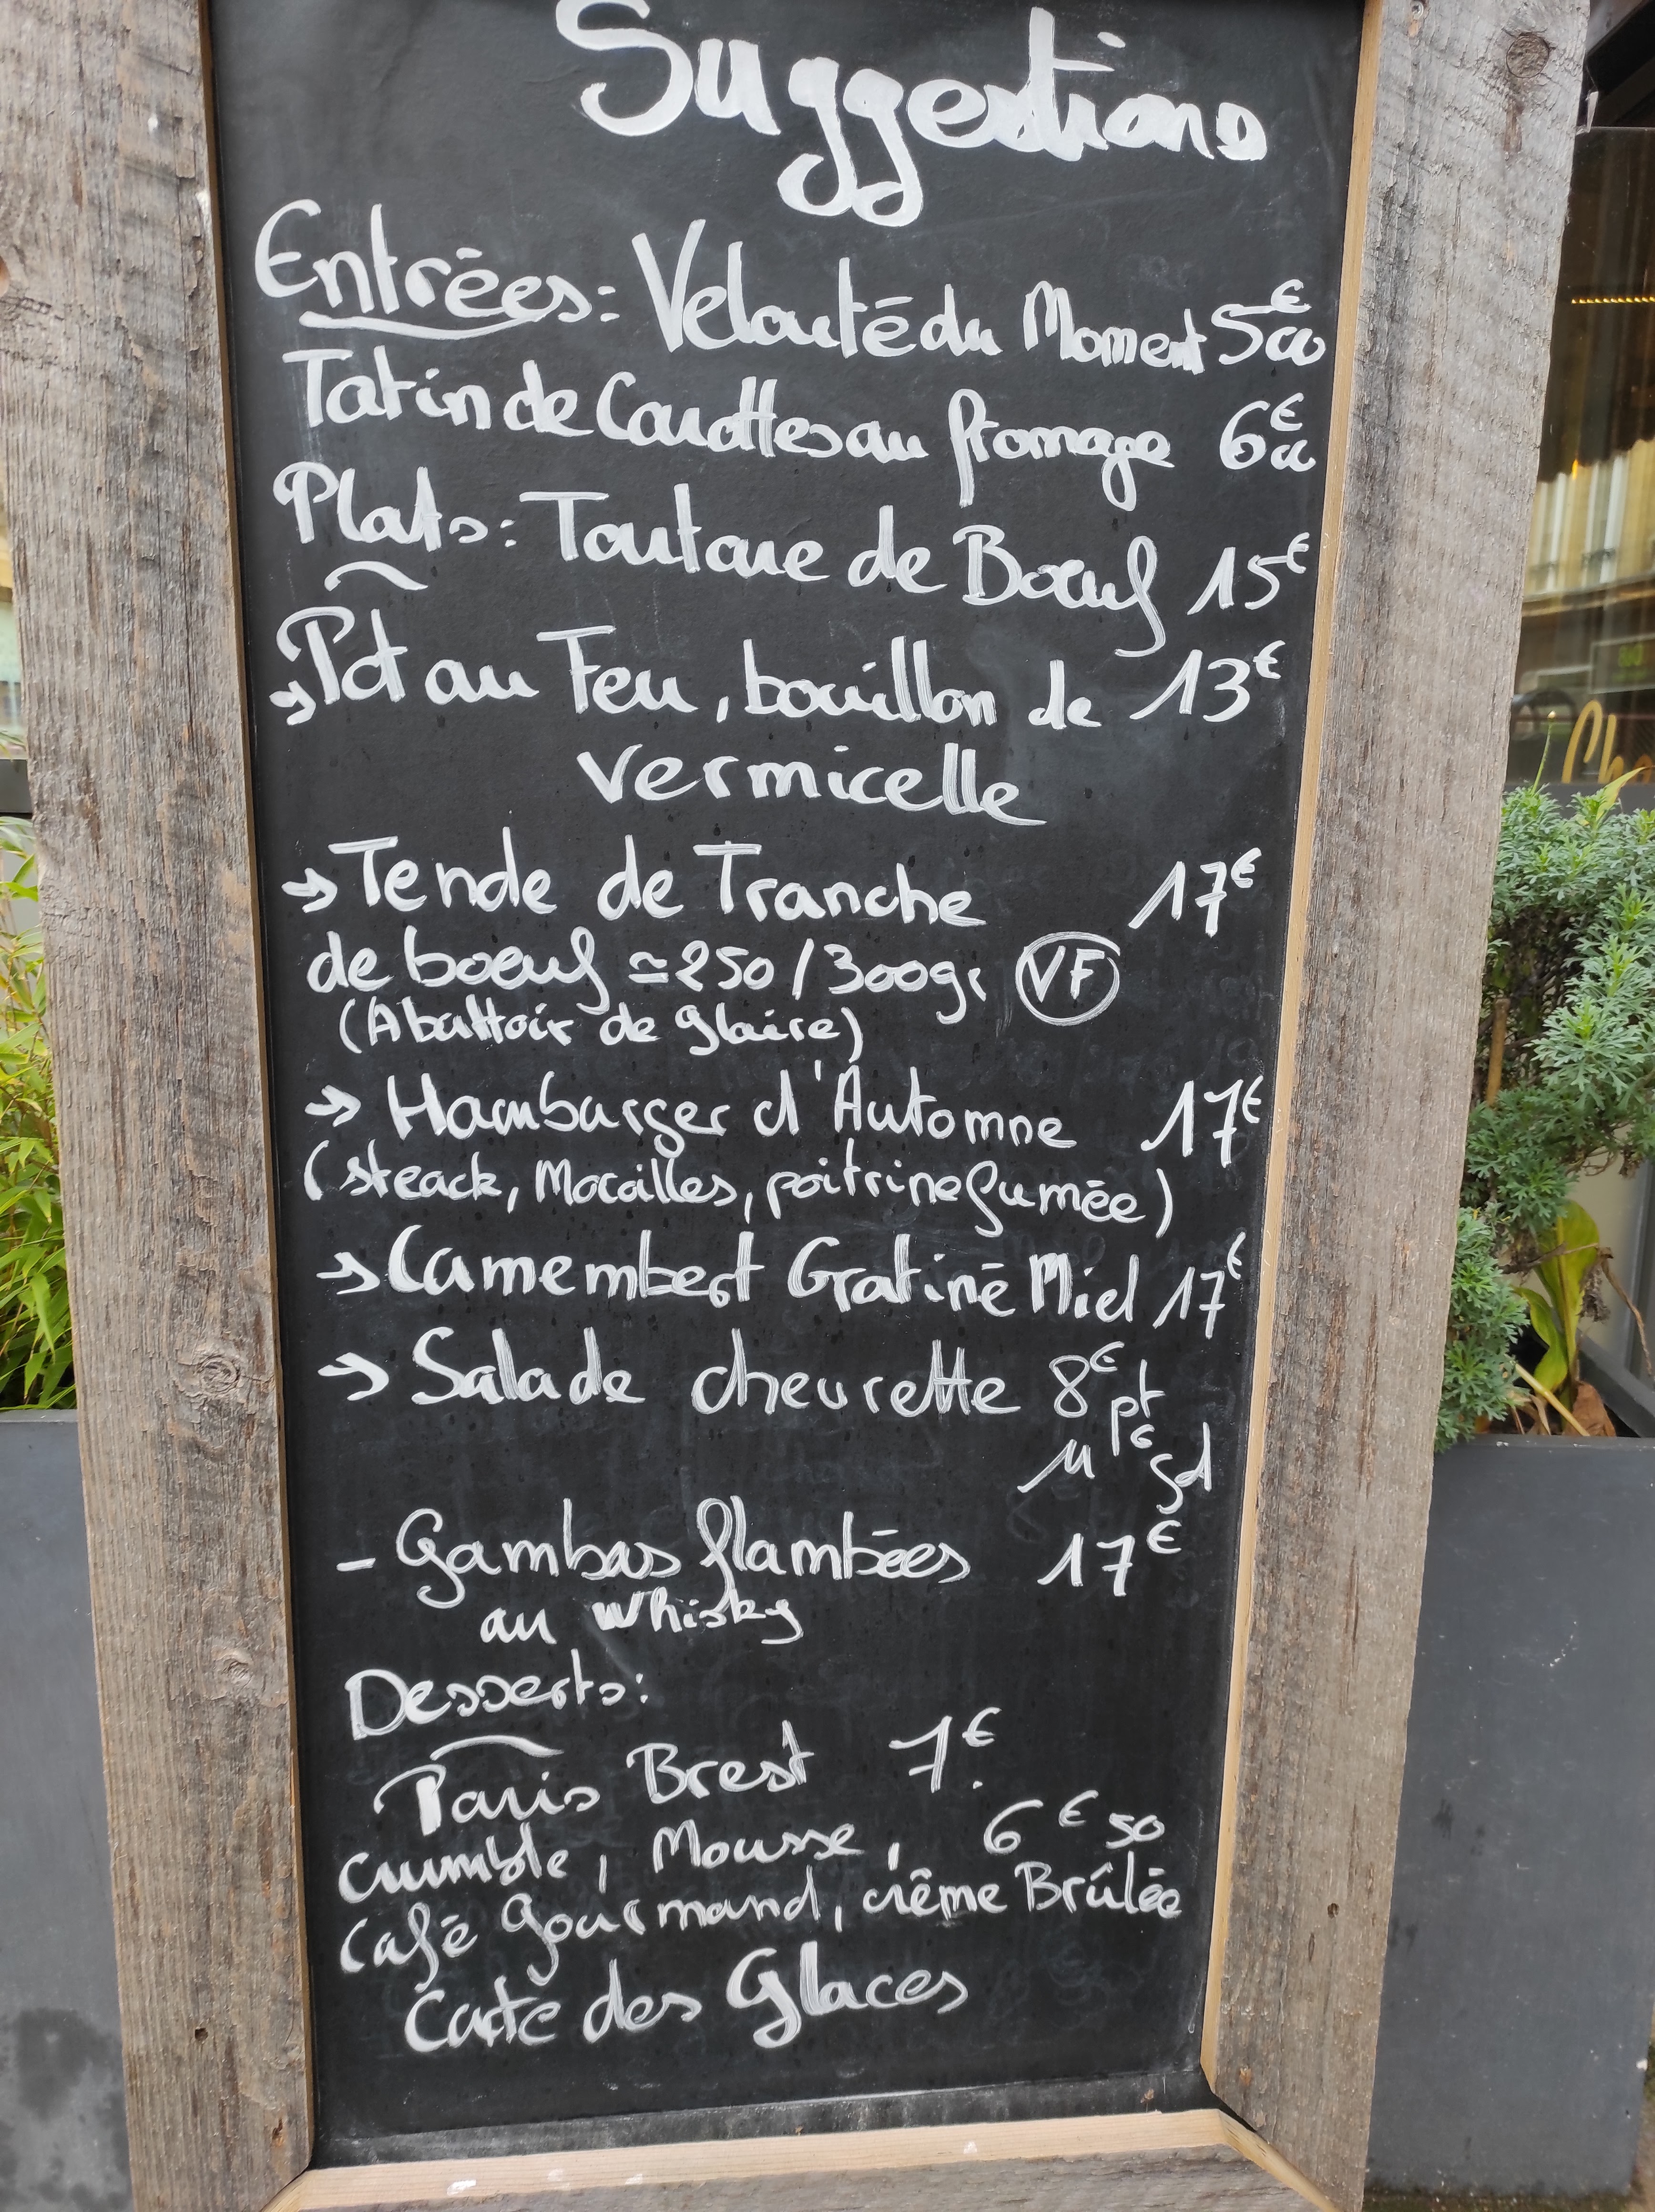 Suggestions
Entrées: Velouté du Moment 5€00
Tatin de Carottes au fromage 6€00
Plats: Tartare de Boeuf 15€
→ Pot au Feu, bouillon de 13€
vermicelle
→ Tende de Tranche 17€
de boeuf ≃ 250/300gr VF
(Abattoir de glaire)
→ Hamburger d'Automne 17€
(steack, Maroilles, poitrine fumée)
→ Camembert Gratiné Miel 17€
→ Salade chevrette 8€ pt
11€ gd
- Gambas flambées 17€
au Whisky
Desserts:
Paris Brest 7€.
Crumble, Mousse, 6€50
Café Gourmand, crême Brûlée
Carte des Glaces